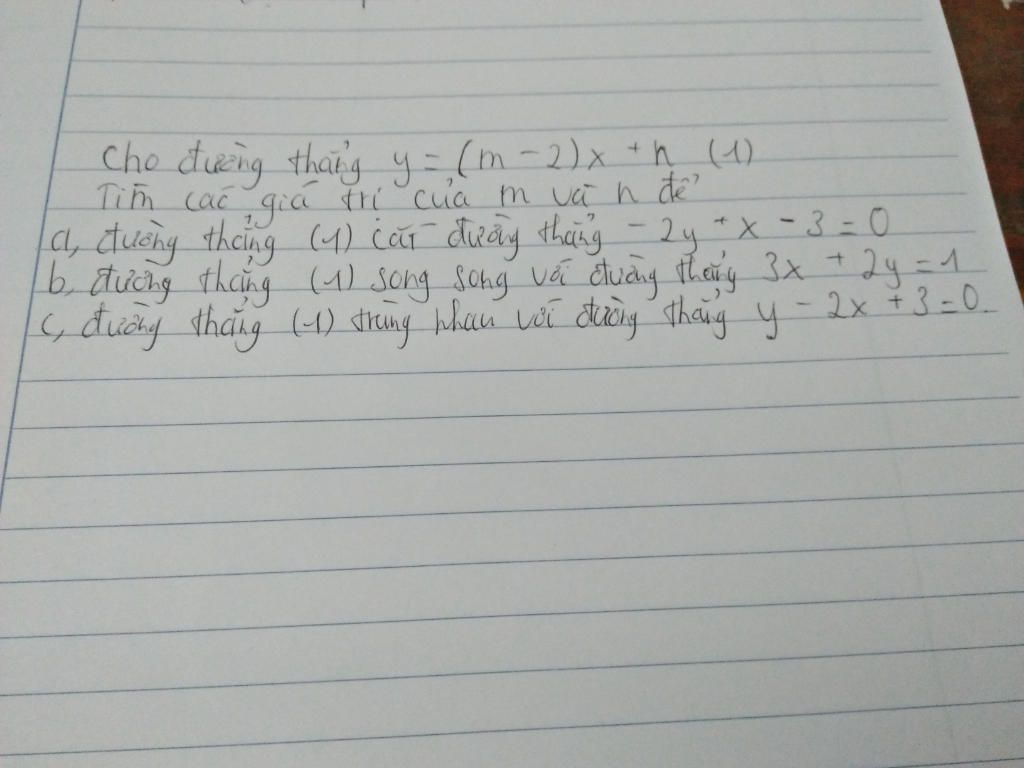 Cho đường thẳng y = (m - 2)x + n (1)
Tìm các giá trị của m và n để
a, đường thẳng (1) cắt đường thẳng - 2y + x - 3 = 0
b, đường thẳng (1) song song với đường thẳng 3x + 2y = 1
c, đường thẳng (1) trùng nhau với đường thẳng y - 2x + 3 = 0.